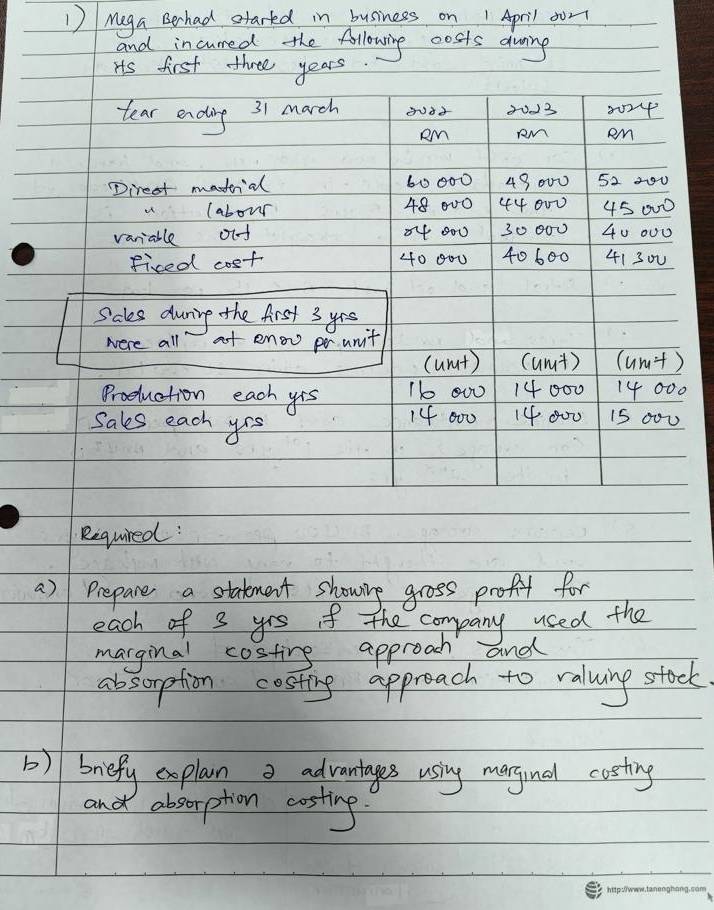 1) Mega Berhad started in business on 1 April 2021
and incurred the following costs during
its first three years.
Year ending 31 March 2022 2023 2024
RM RM RM
Direct material 60 000 49 000 52 200
" labour 48 000 44 000 45 000
variable OH 24 000 30 000 40 000
Fixed cost 40 000 40 600 41 300
Sales during the first 3 yrs
were all at per unit
(unit) (unit) (unit)
Production each yrs 16 000 14 000 14 000
Sales each yrs 14 000 14 000 15 000
Required:
a) Prepare a statement showing gross profit for
each of 3 yrs if the company used the
marginal costing approach and
absorption costing approach to valuing stock.
b) briefly explain 2 advantages using marginal costing
and absorption costing.
http://www.tanenghong.com